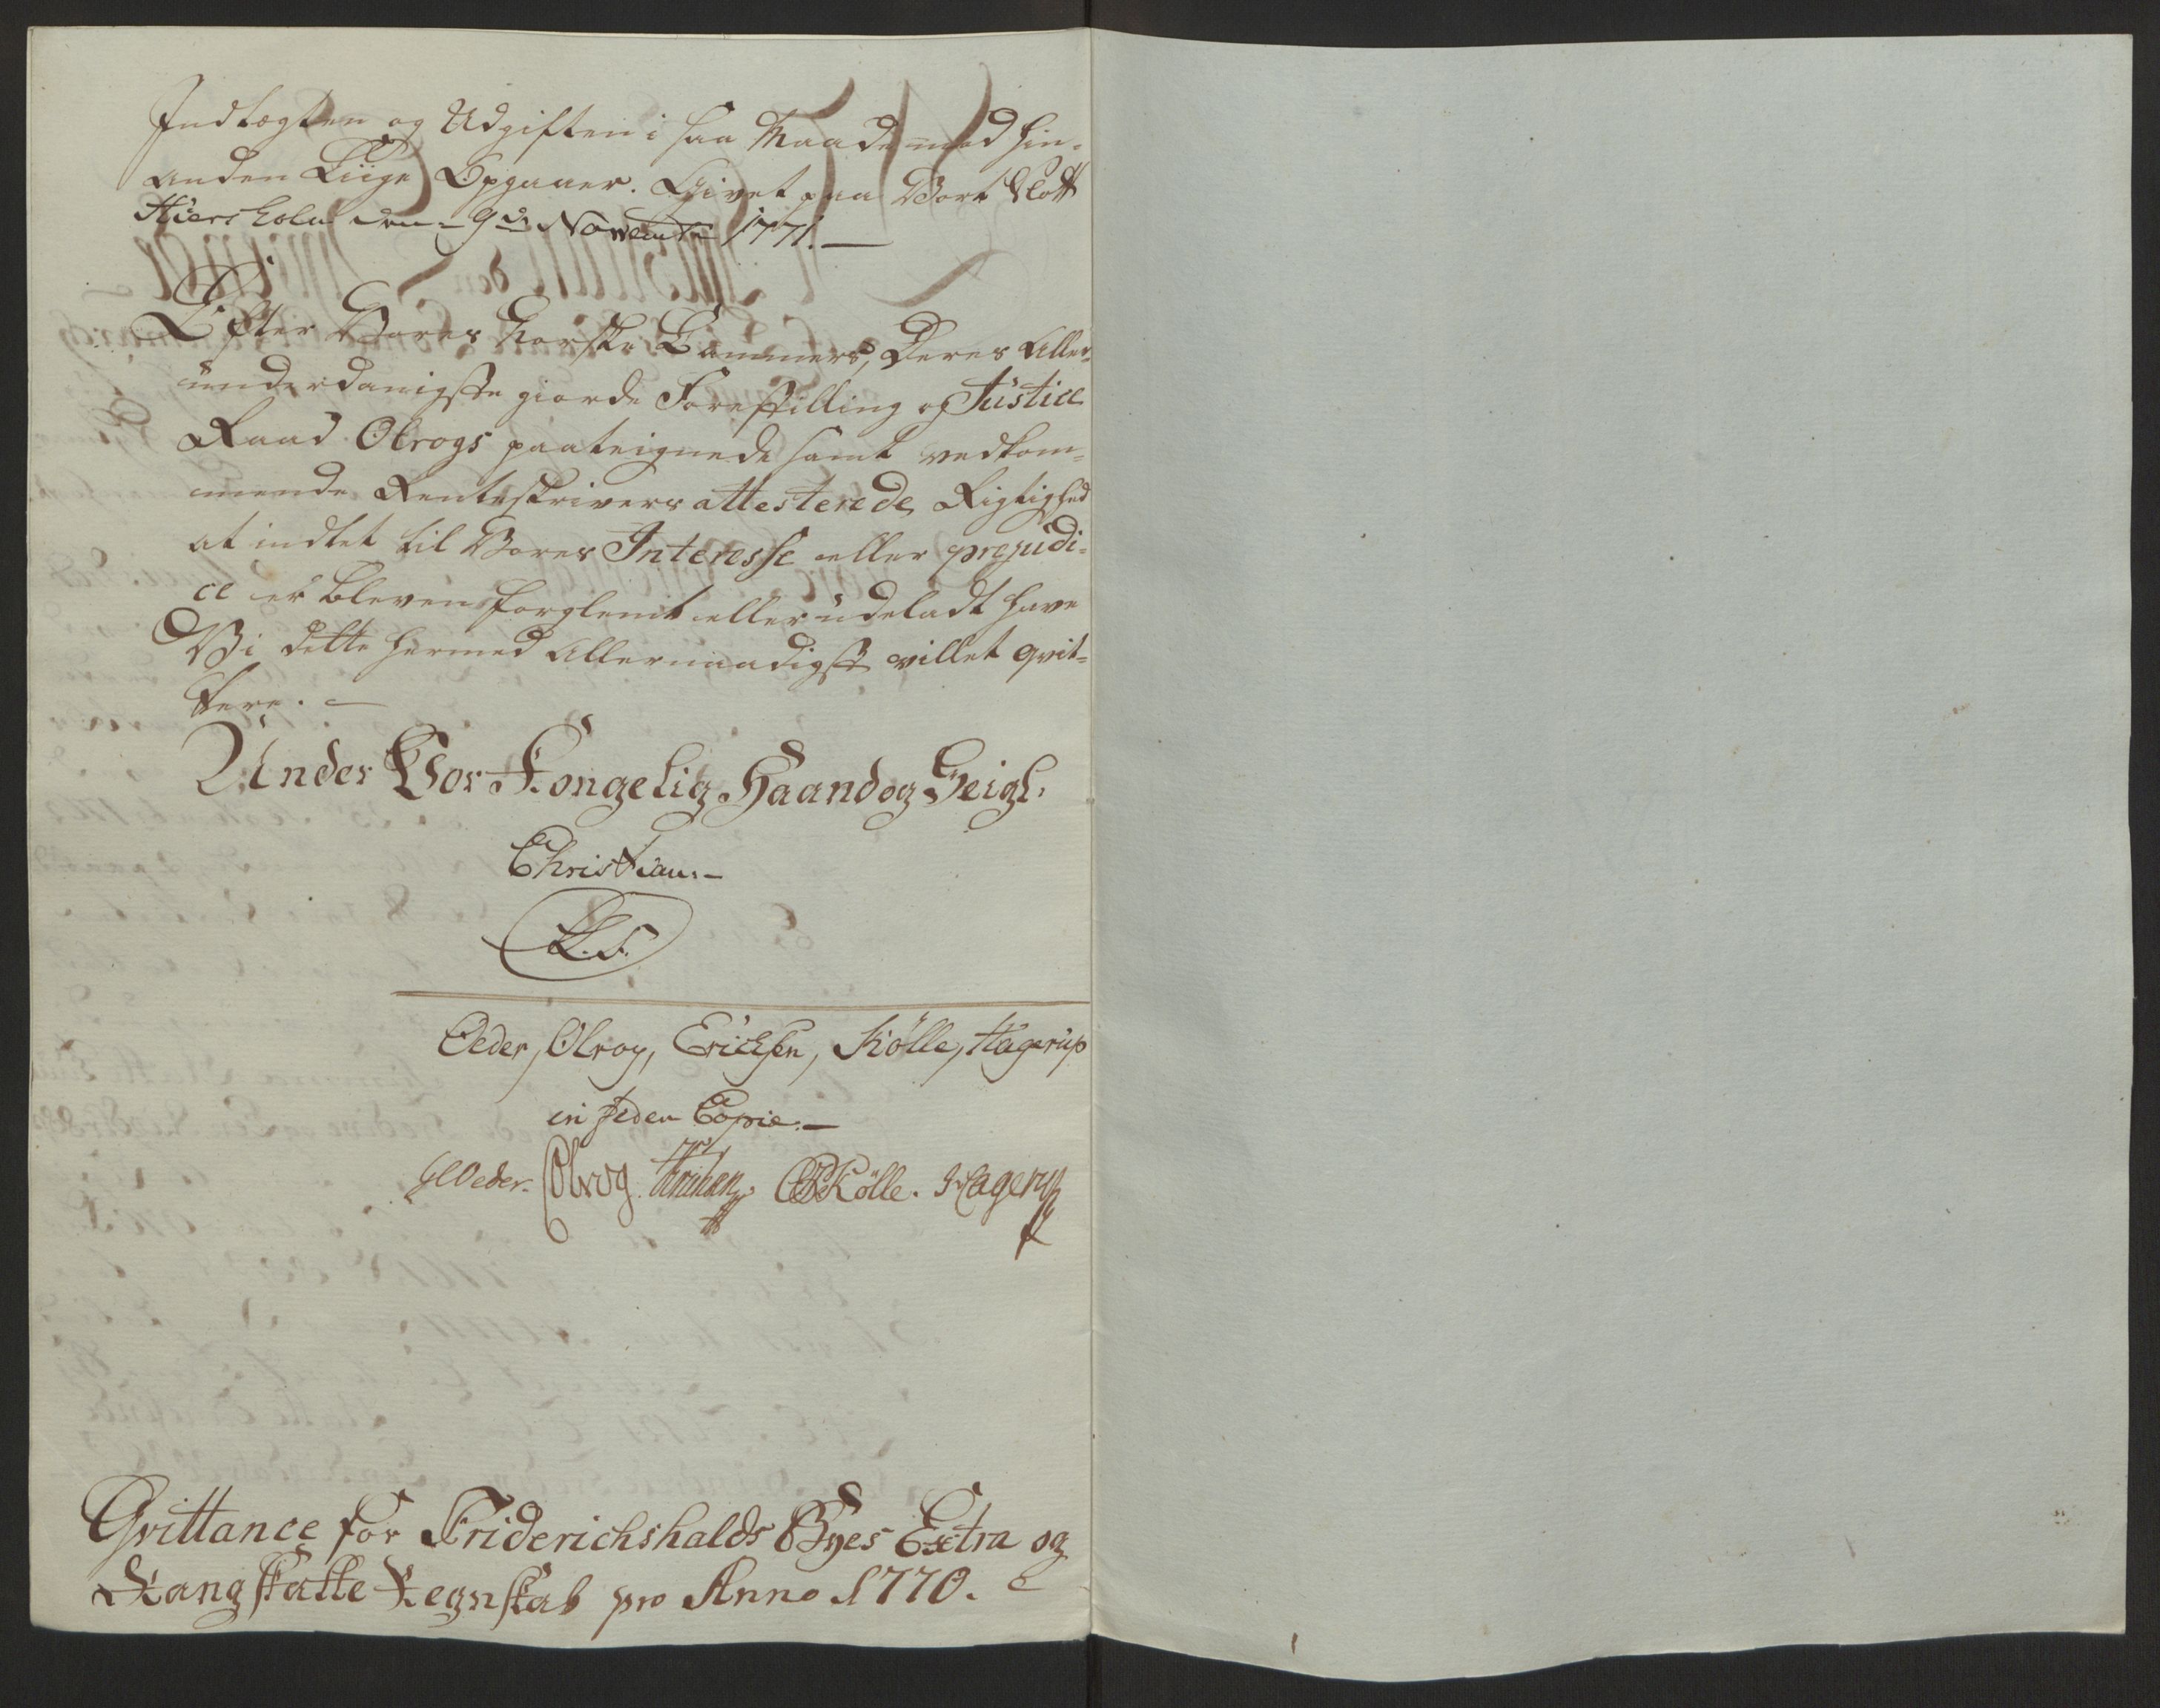 Indtægten og Udgiften i saa Maade med hin-
anden Liige Opgaaer. Givet paa Vort Slott
Hiersholm den 9de Novembr 1771.
Efter Vores Norske Cammers, Deres Aller-
underdanigste giorde Forestilling og Justice
Raad Olrogs paateignede samt vedkom-
mende Renteskrivers attesterede Rigtighed
at indtet til Vores Interesse eller prejudi-
ce er bleven forglemt eller udeladt have
Vi dette hermed Allernaadigst villet qvit-
tere.
Under Vor Kongelig Haand og Seigl.
Christian.
L.S.
Oeder, Olrog, Erichsen, Kölle, Hagerup
in fidem Copie.
Oeder. Olrog. Erichsen. Kölle. Hagerup
Qvittance for Friderichshalds Byes Extra og
Rangskatte Regnskab pro Anno 1770.